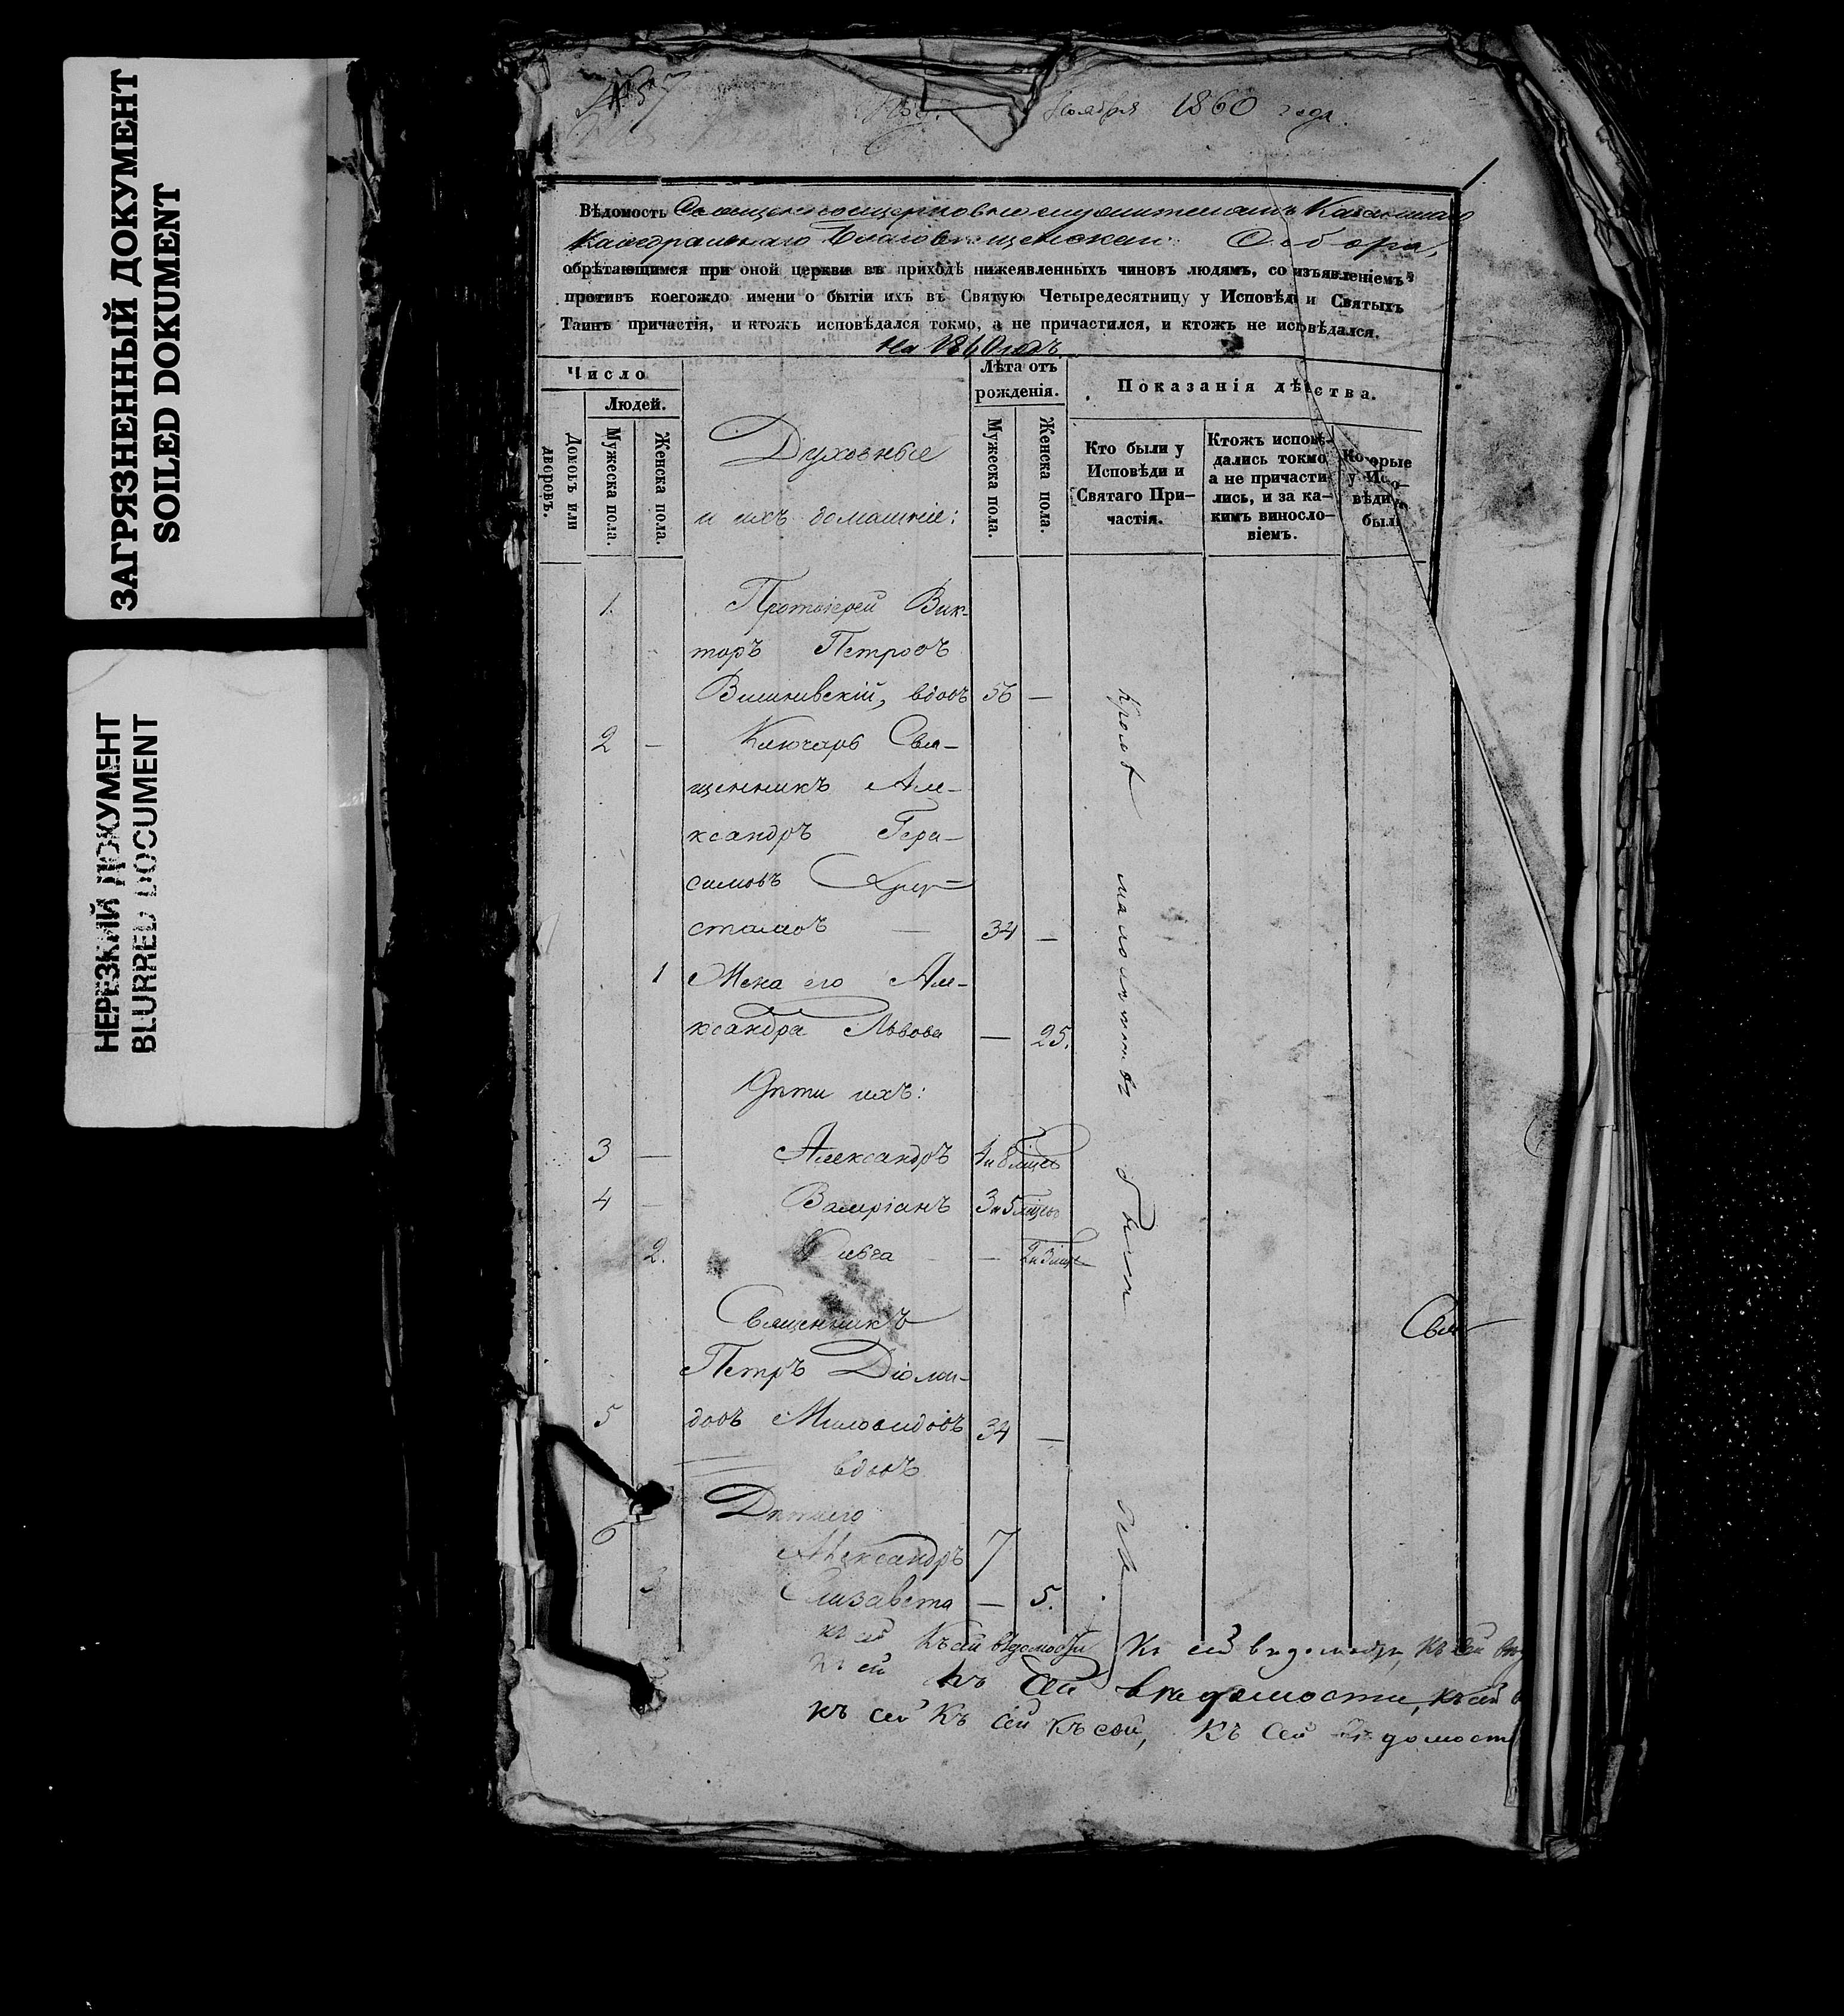 ЗАГРЯЗНЕННЫЙ ДОКУМЕНТ
SOILED DOKUMENT
НЕРЕЗКИЙ ДОКУМЕНТ
BLURRED DOCUMENT
Ноября 1860 года.
Вѣдомость Священноцерковнослужителямъ Казанскаго
Каѳедральнаго Благовѣщенскаго Собора,
обрѣтающимся при оной церкви въ приходѣ нижеявленныхъ чиновъ людямъ, со изъявленіемъ
противъ коегождо имени о бытіи ихъ въ Святую Четыредесятницу у Исповѣди и Святыхъ
Таинъ причастія, и ктожъ исповѣдался токмо, а не причастился, и ктожъ не исповѣдался.
На 1860 годъ
Число
Людей.
Домовъ или дворовъ.
Мужеска пола.
Женска пола.
Духовные
и ихъ домашніе:
Лѣта отъ рожденія.
Мужеска пола.
Женска пола.
Показанія дѣйства.
Кто были у Исповѣди и Святаго При-
частія.
Ктожъ исповѣ-
дались токмо а не причасти-
лись, и за ка-
кимъ виносло-
віемъ.
Которые у Испо-
вѣди не были
1. Протоіерей Вик-
торъ Петровъ
Вишневскій, вдовъ 56 —
2 — Ключарь Свя-
щенникъ Але-
ксандръ Гера-
симовъ Хру-
сталевъ — 34 —
1 Жена его Але-
ксандра Львова — 25.
Дѣти ихъ:
3 — Александръ 4 и 8 мѣсяц
4 — Валеріанъ 3 и 5 мѣсяц
2. Ольга — — 2 и 3 мѣс
Священникъ
Петръ Діоми-
5 довъ Миловидовъ 34 —
вдовъ
Дѣти его
6 Александръ 7
3 Елизавета — 5.
Кромѣ малолѣтнихъ были
всѣ.
Свя
къ сей Къ сей вѣдомости Къ сей вѣдомости, Къ сей вѣд
къ сей къ Сей вѣдомости, къ сей в
къ сей Къ сей Къ сей, Къ Сей вѣдомост